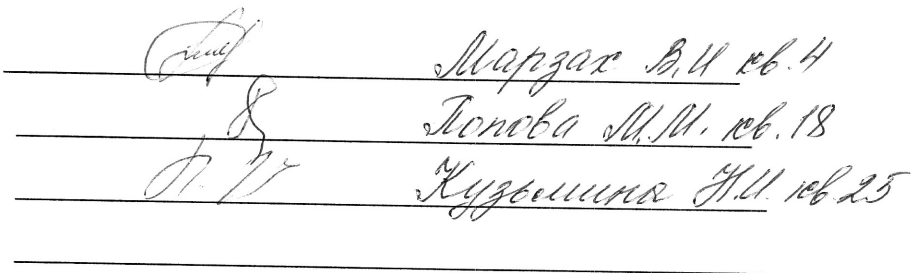 Марзак В.И кв.4
Попова М.М. кв.18
Кузьмина Н.И. кв.25